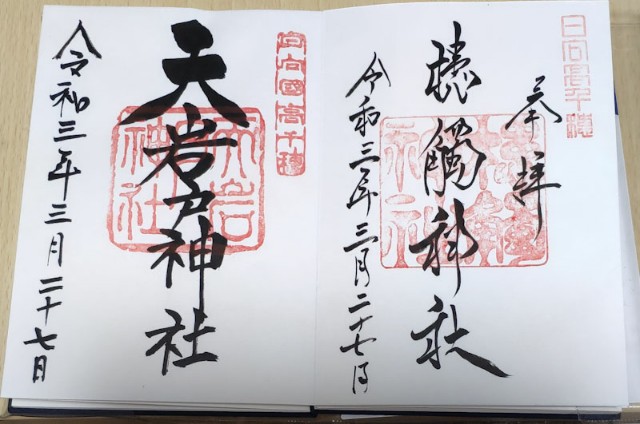 奉拝
日向高千穂
槵觸神社
令和三年三月二十七日
日向國高千穂
天岩戸神社
天岩戸神社
令和三年三月二十七日